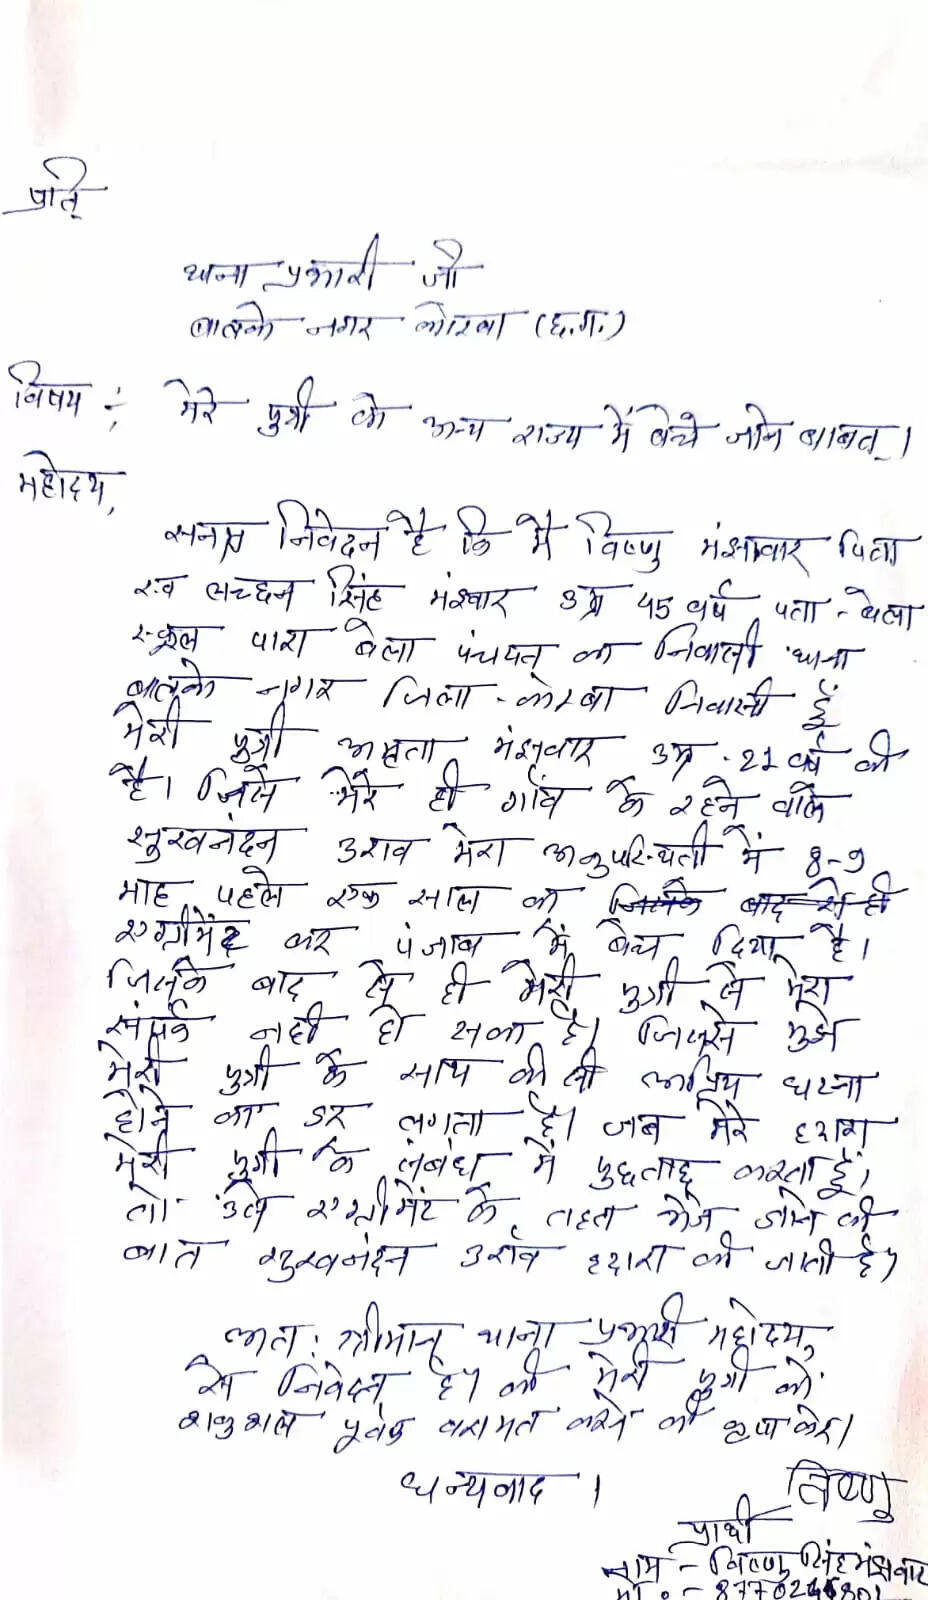 प्रति
थाना प्रभारी जी
बालको नगर कोरबा (छ.ग.)
विषय :- मेरे पुत्री को अन्य राज्य में बेचे जाने बाबत् ।
महोदय,
सनम्र निवेदन है कि मै विष्णु मंझवार पिता
स्व लच्छन सिंह मंझवार उम्र 45 वर्ष पता - बेला
स्कूल पारा बेला पंचयत् का निवासी थाना
बालको नगर जिला - कोरबा निवासी हूँ
मेरी पुत्री अमृता मंझवार उम्र - 21 वर्ष की
है। जिसे मेरे ही गांव के रहने वाले
सुखनंदन उराव मेरा अनुपस्थिती में 8-9
माह पहले एक साल का जिसके बाद से ही
एग्रीमेंट कर पंजाब में बेच दिया है।
जिसके बाद से ही मेरी पुत्री से मेरा
संपर्क नही हो सका है। जिससे मुझे
मेरी पुत्री के साथ कीसी अप्रिय घटना
होने का डर लगता है। जब मेरे द्वारा
मेरी पुत्री के संबंध में पुछताछ करता हूँ।
तो उसे एग्रीमेंट के तहत भेजे जाने की
बात सुखनंदन उरांव द्वारा की जाती है।
अतः श्रीमान् थाना प्रभारी महोदय,
से निवेदन है। की मेरी पुत्री को
शकुशल पूर्वक बरामत करने की कृपा करे।
धन्यवाद ।
विष्णु
प्रार्थी
नाम - विष्णु सिंह मंझवार
मो. : -